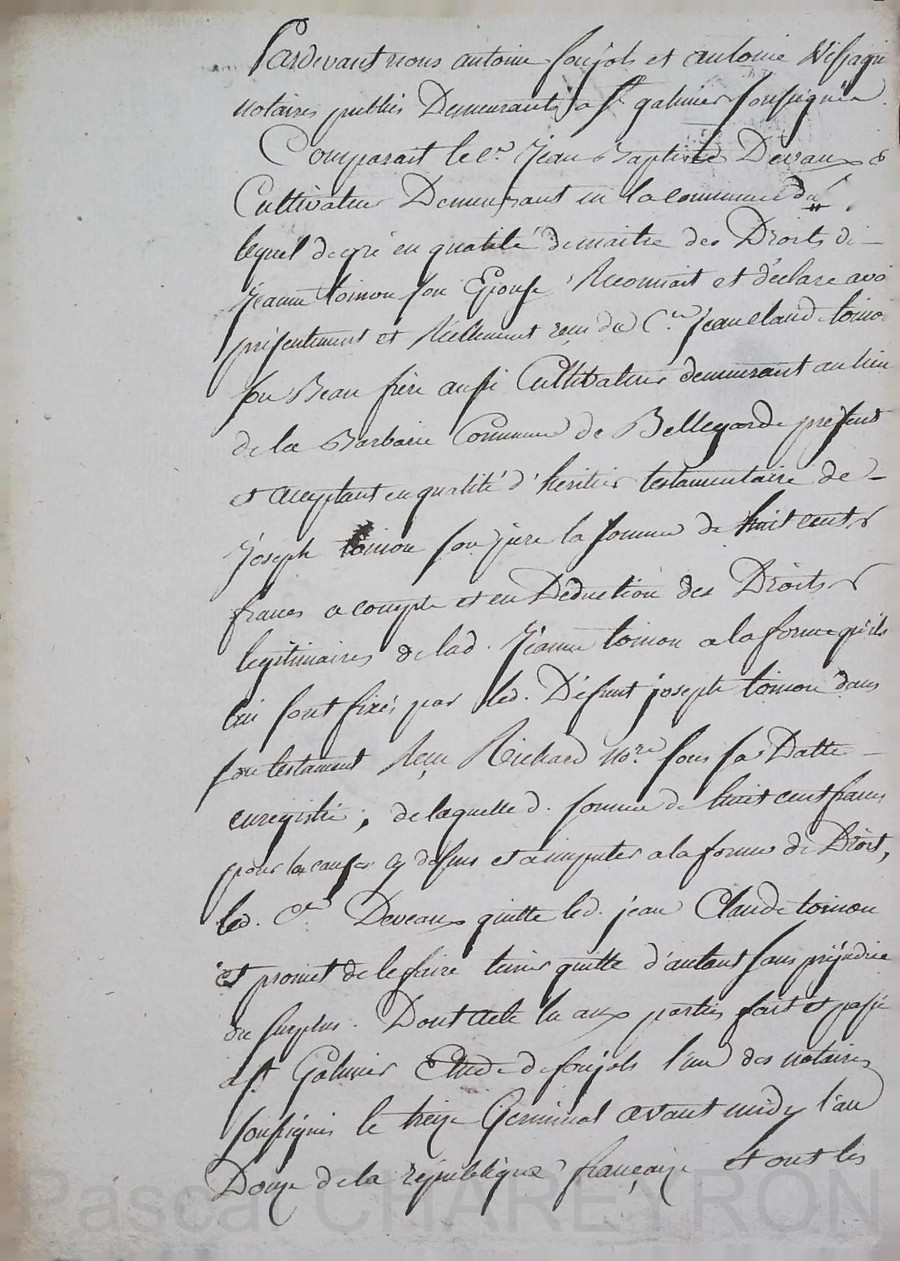 Pardevant nous antoine foujols et antoine
notaires publics Demeurants a st. galmier soussignés.
Comparait le Cn. Jean Baptiste Devaux
Cultivateur Demeurant en la commune du #
lequel de gré en qualité de maitre des Droits de
Jeanne toinon son Epouse Reconnait et déclare avoi
présentement et Réellement reçu du Cen. Jean claude toino
son Beau frère aussi Cultivateur demeurant au lieu
de la Barbarie Commune de Bellegarde présent
et acceptant en qualité d'héritier testamentaire de
Joseph toinon son père la somme de huit cents
francs a compte et en Déduction des Droits
legitimaires de lad. Jeanne toinon a la forme qu'ils
lui sont fixés par led. Défunt joseph toinon dans
son testament Reçu Richard nore. sous sa Datte
enregistré ; de laquelle d. somme de huit cent francs
pour les causes cy dessus et a imputer a la forme de Droit,
led. Cen Deveaux quitte led. jean Claude toinon
et promet de le faire tenir quitte d'autant sans préjudice
du surplus. Dont acte lu aux parties fait et passé
a st. Galmier Etude de foujols l'un des notaires
soussignés le treize Germinal avant midy l'an
Douze de la république française et ont les
Pascal CHAREYRON